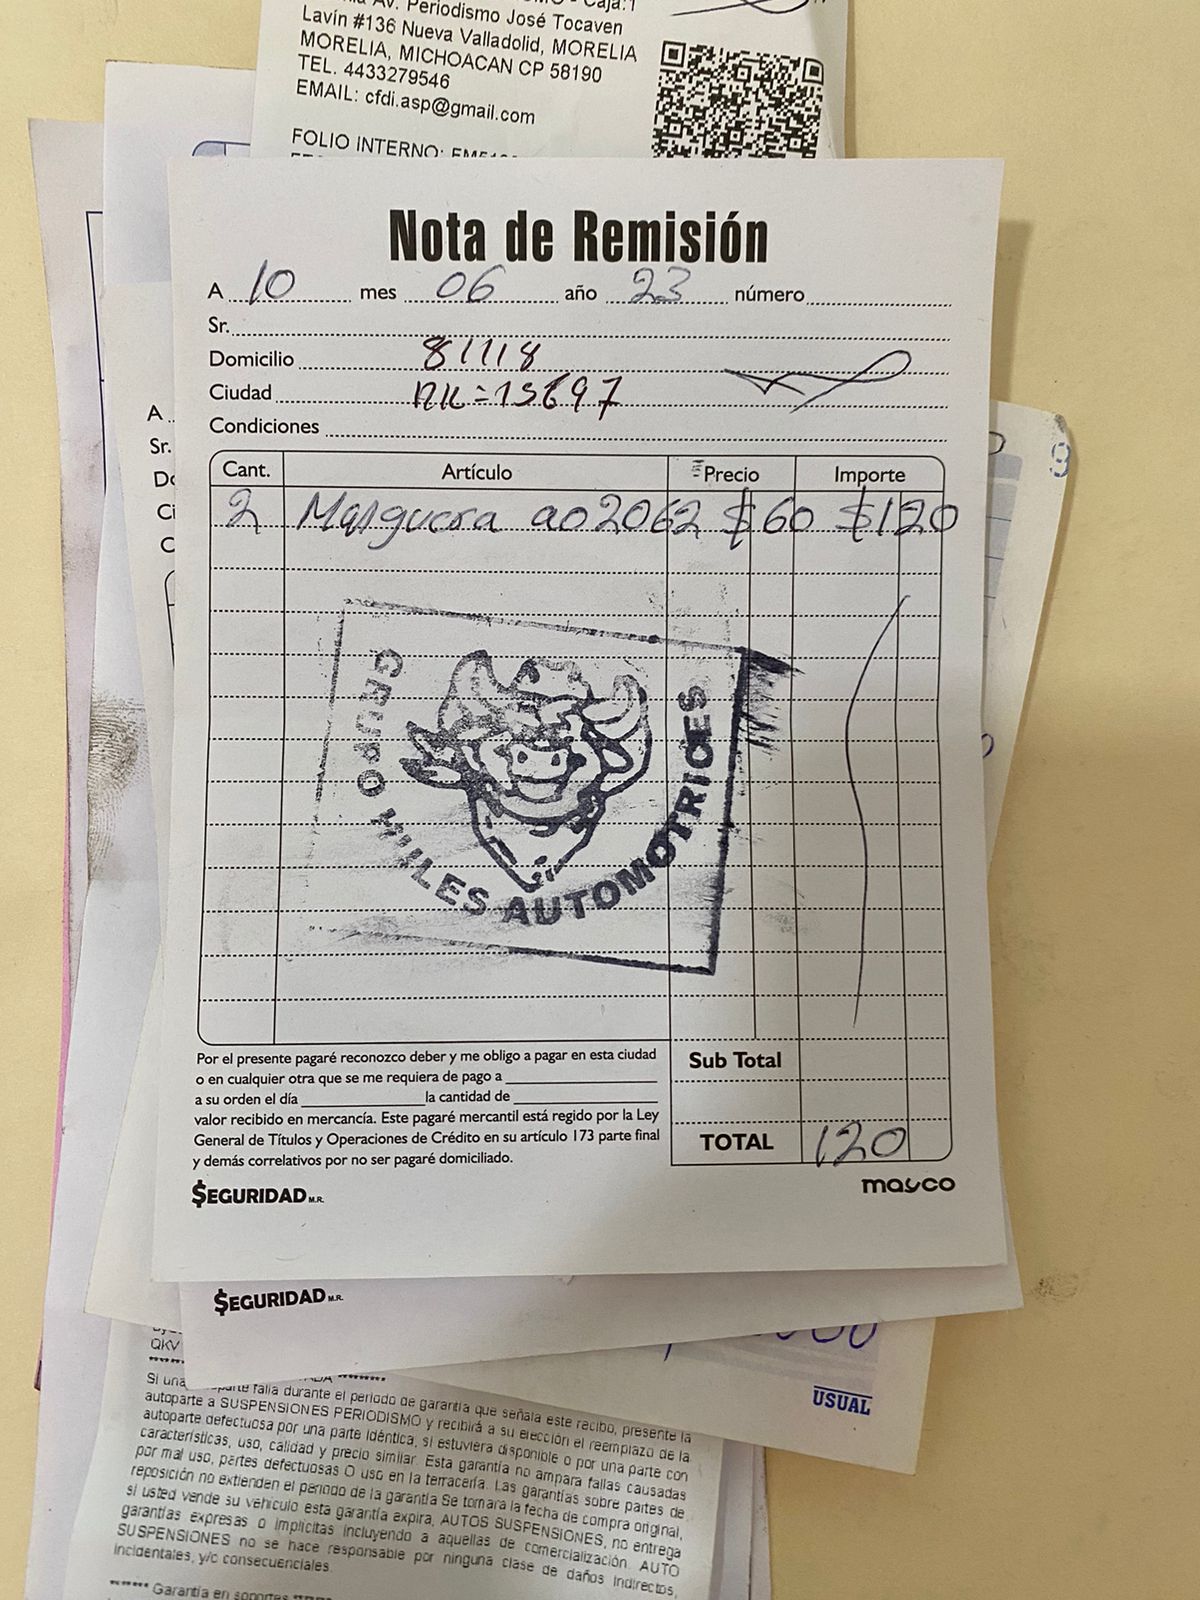 Av. Periodismo José Tocaven
Lavín #136 Nueva Valladolid, MORELIA
MORELIA, MICHOACAN CP 58190
TEL. 4433279546
EMAIL: cfdi.asp@gmail.com
FOLIO INTERNO:
Nota de Remisión
A 10 mes 06 año 23 número
Sr.
Domicilio 81118
Ciudad
Condiciones
Cant. Artículo Precio Importe
2 Manguera ao2062 $60 $120
GRUPO HULES AUTOMOTRICES
Por el presente pagaré reconozco deber y me obligo a pagar en esta ciudad
o en cualquier otra que se me requiera de pago a
a su orden el día la cantidad de
valor recibido en mercancía. Este pagaré mercantil está regido por la Ley
General de Títulos y Operaciones de Crédito en su artículo 173 parte final
y demás correlativos por no ser pagaré domiciliado.
Sub Total
TOTAL 120
$EGURIDAD M.R.
mayco
A
Sr.
$EGURIDAD M.R.
USUAL
QKV
Si una falla durante el periodo de garantía que señala este recibo, presente la
autoparte a SUSPENSIONES PERIODISMO y recibirá a su elección el reemplazo de la
autoparte defectuosa por una parte idéntica, si estuviera disponible o por una parte con
características, uso, calidad y precio similar. Esta garantía no ampara fallas causadas
por mal uso, partes defectuosas O uso en la terracería. Las garantías sobre partes de
reposición no extienden el periodo de la garantía Se tomara la fecha de compra original,
si usted vende su vehículo esta garantía expira, AUTOS SUSPENSIONES, no entrega
garantías expresas o implícitas incluyendo a aquellas de comercialización. AUTO
SUSPENSIONES no se hace responsable por ninguna clase de daños indirectos,
incidentales, y/o consecuenciales.
***** Garantía en soportes ****